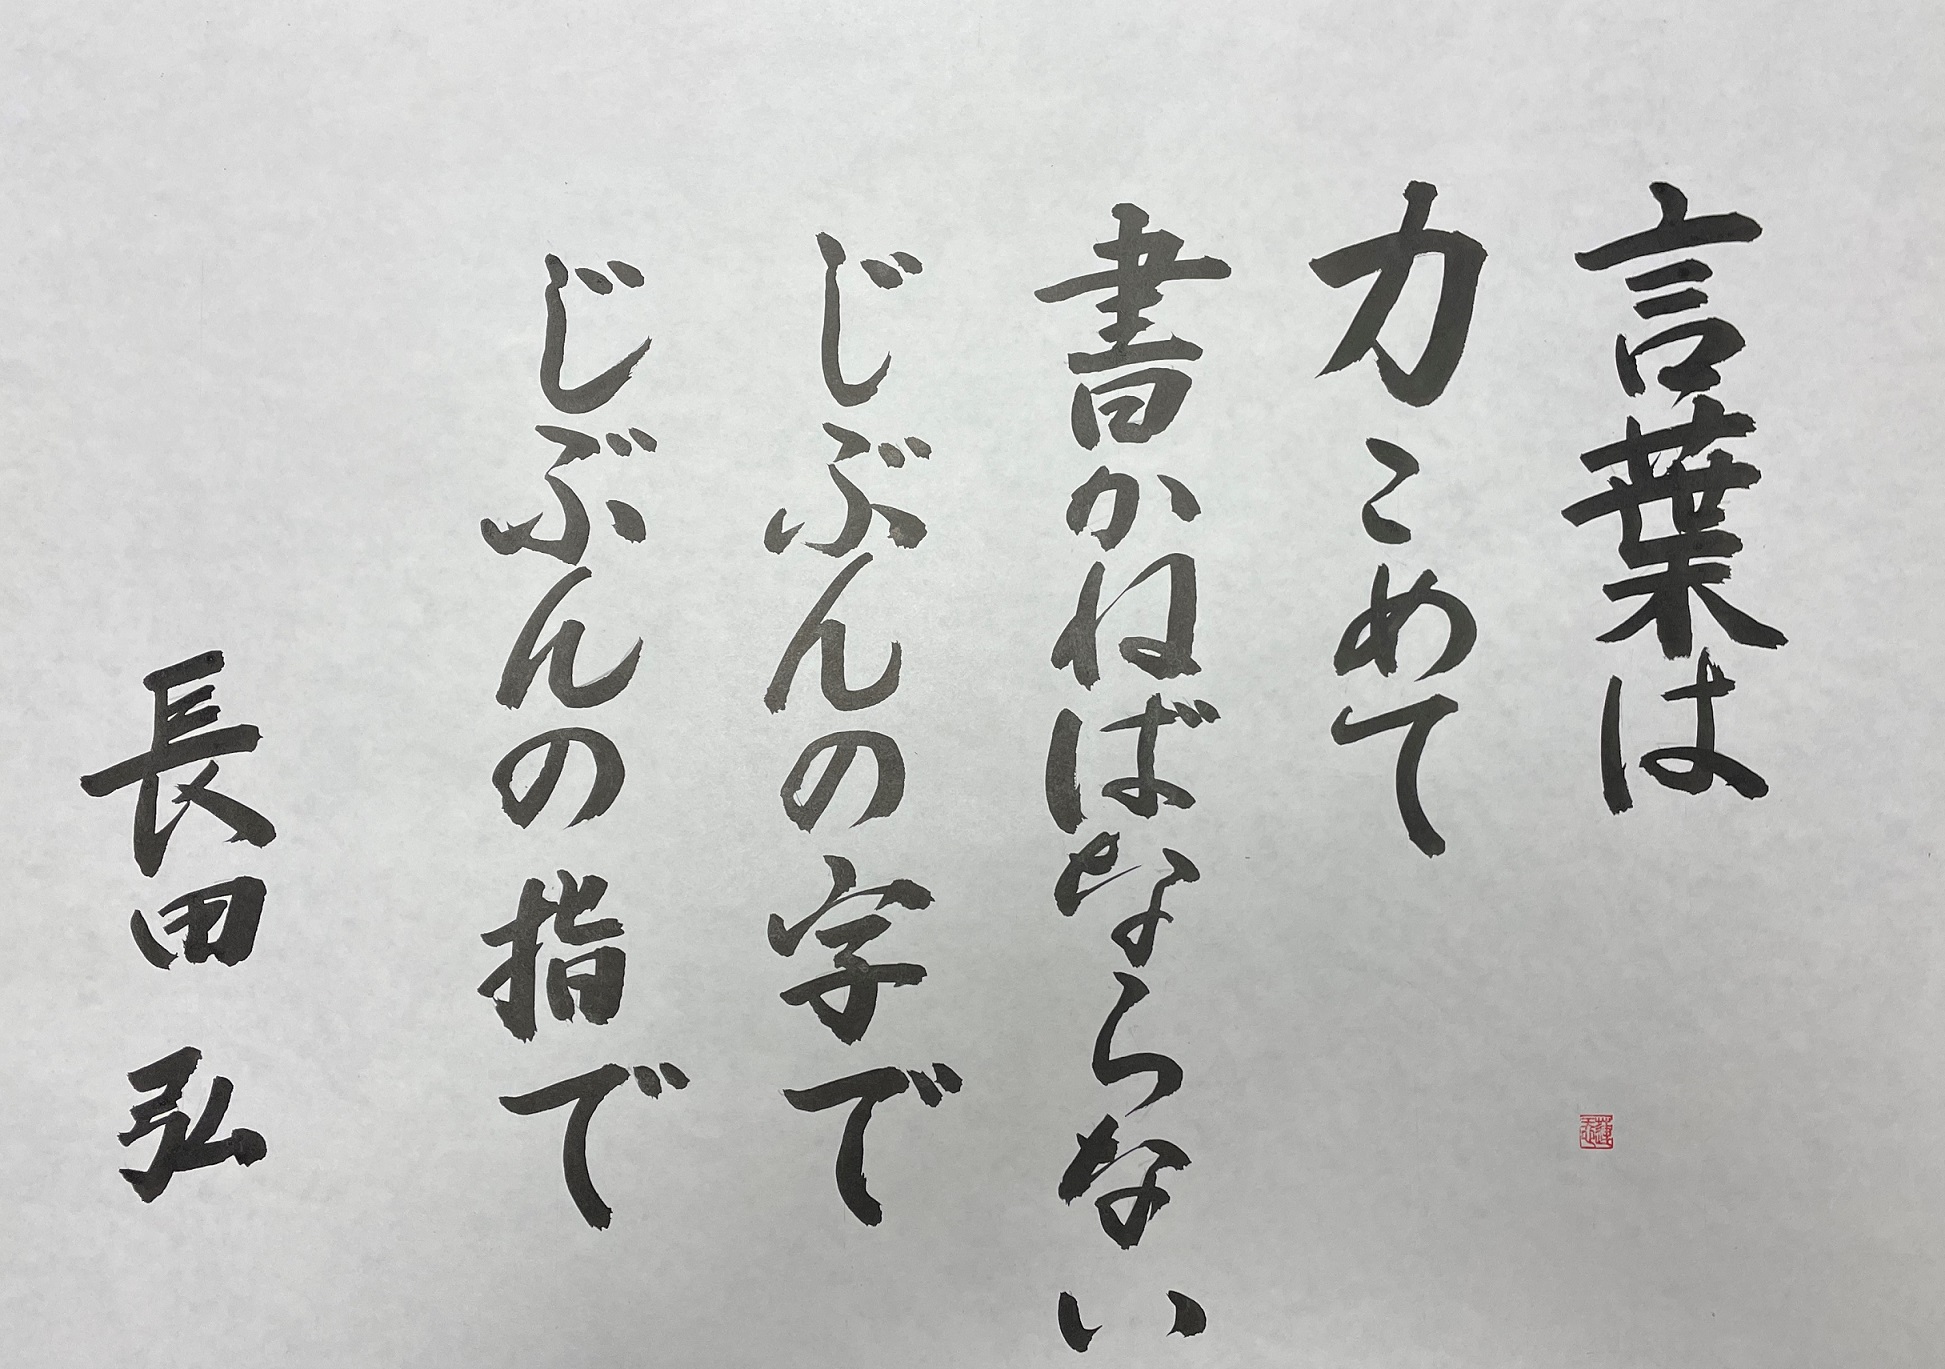 言葉は
力こめて
書かねばならない
じぶんの字で
じぶんの指で
長田弘